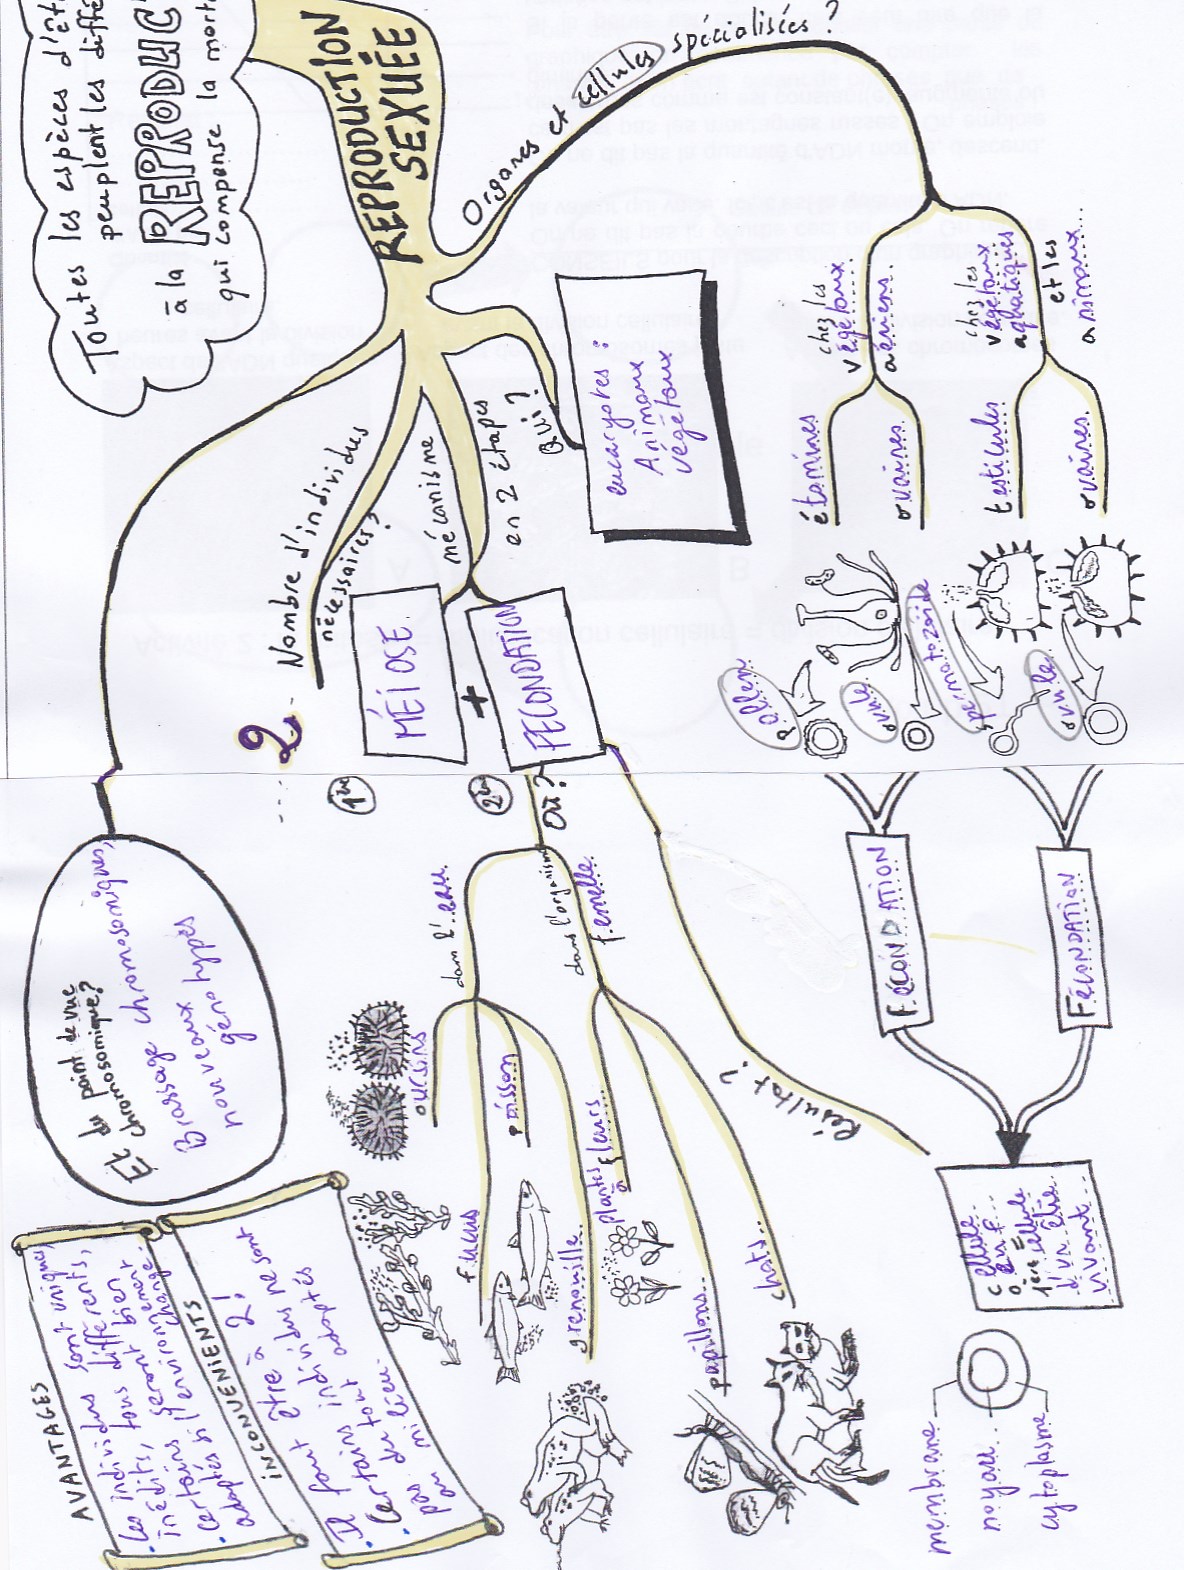 Toutes les espèces d'êt
peuplent les diffé
à la REPRODUC
qui compense la mort
REPRODUCTION
SEXUÉE
Organes et cellules spécialisées ?
chez les
végétaux
aériens.
chez les
végétaux
aquatiques
et les
animaux...
étamines
ovaires.
testicules
ovaires.
pollen
ovule.
spermatozoïde
ovule
FÉCONDATION
FÉCONDATION
cellule
œuf
1ère cellule
d'un être
vivant
membrane
noyau
cytoplasme
Qui ?
eucaryotes :
Animaux
Végétaux
mécanisme
en 2 étapes
MÉIOSE
+
FÉCONDATION
1ère
2èm
Où ?
dans l'eau.
oursins
fucus
poisson
grenouille
dans l'organisme
femelle.
plantes
à fleurs
papillons.
chats.
Résultat ?
Nombre d'individus
nécessaires ?
2
Et du point de vue
chromosomique?
Brassage chromosomiques,
nouveaux
génotypes
AVANTAGES
. Les individus sont uniques,
inédits, tous différents,
. Certains seront bien
adaptés si l'environnement
change.
INCONVENIENTS
. Il faut être à 2!
. Certains individus ne sont
pas du tout adaptés
au milieu.